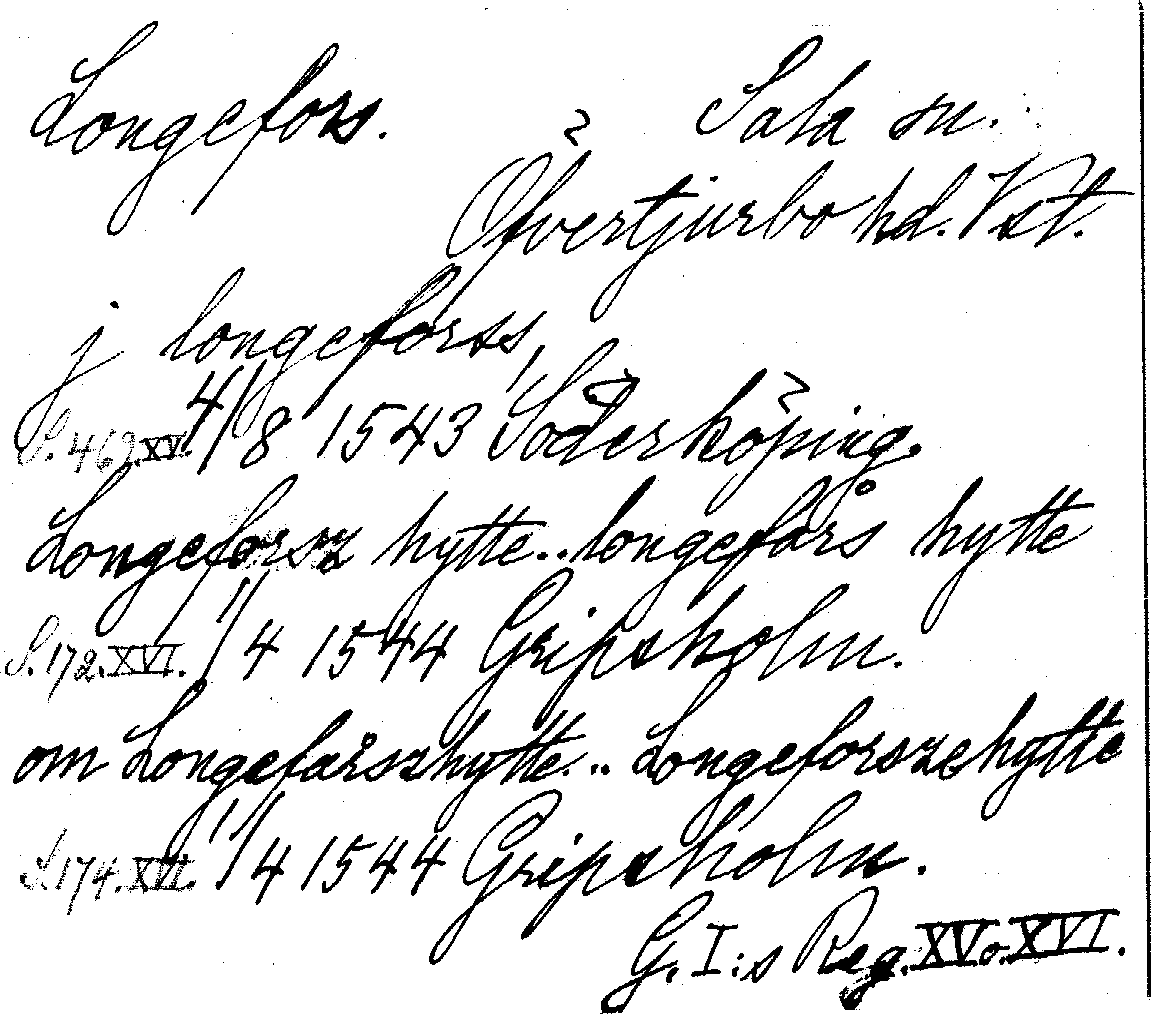 Longefors. Sala sn.
Öfvertjurbo hd. Vst.
j longeforss,
S. 469. XV. 4/8 1543 Söderköping.
Longeforsz hytte.. longefårs hytte
S. 172. XVI. 11/4 1544 Gripsholm.
om Longefårszhytte... Longeforszehytte
S. 174. XVI. 11/4 1544 Gripsholm.
G. I:s Reg. XV o. XVI.